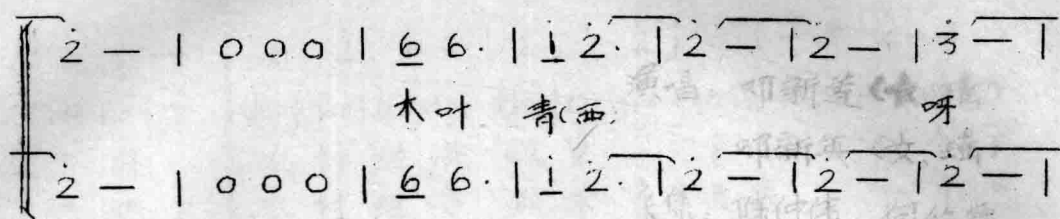 2̇ — | 0 0 0 | 6̲ 6· | i̲ 2̇· | 2̇ — | 2̇ — | 3̇ — |
木叶 青(西, 呀
2̇ — | 0 0 0 | 6̲ 6· | i̲ 2̇· | 2̇ — | 2̇ — | 2̇ — |